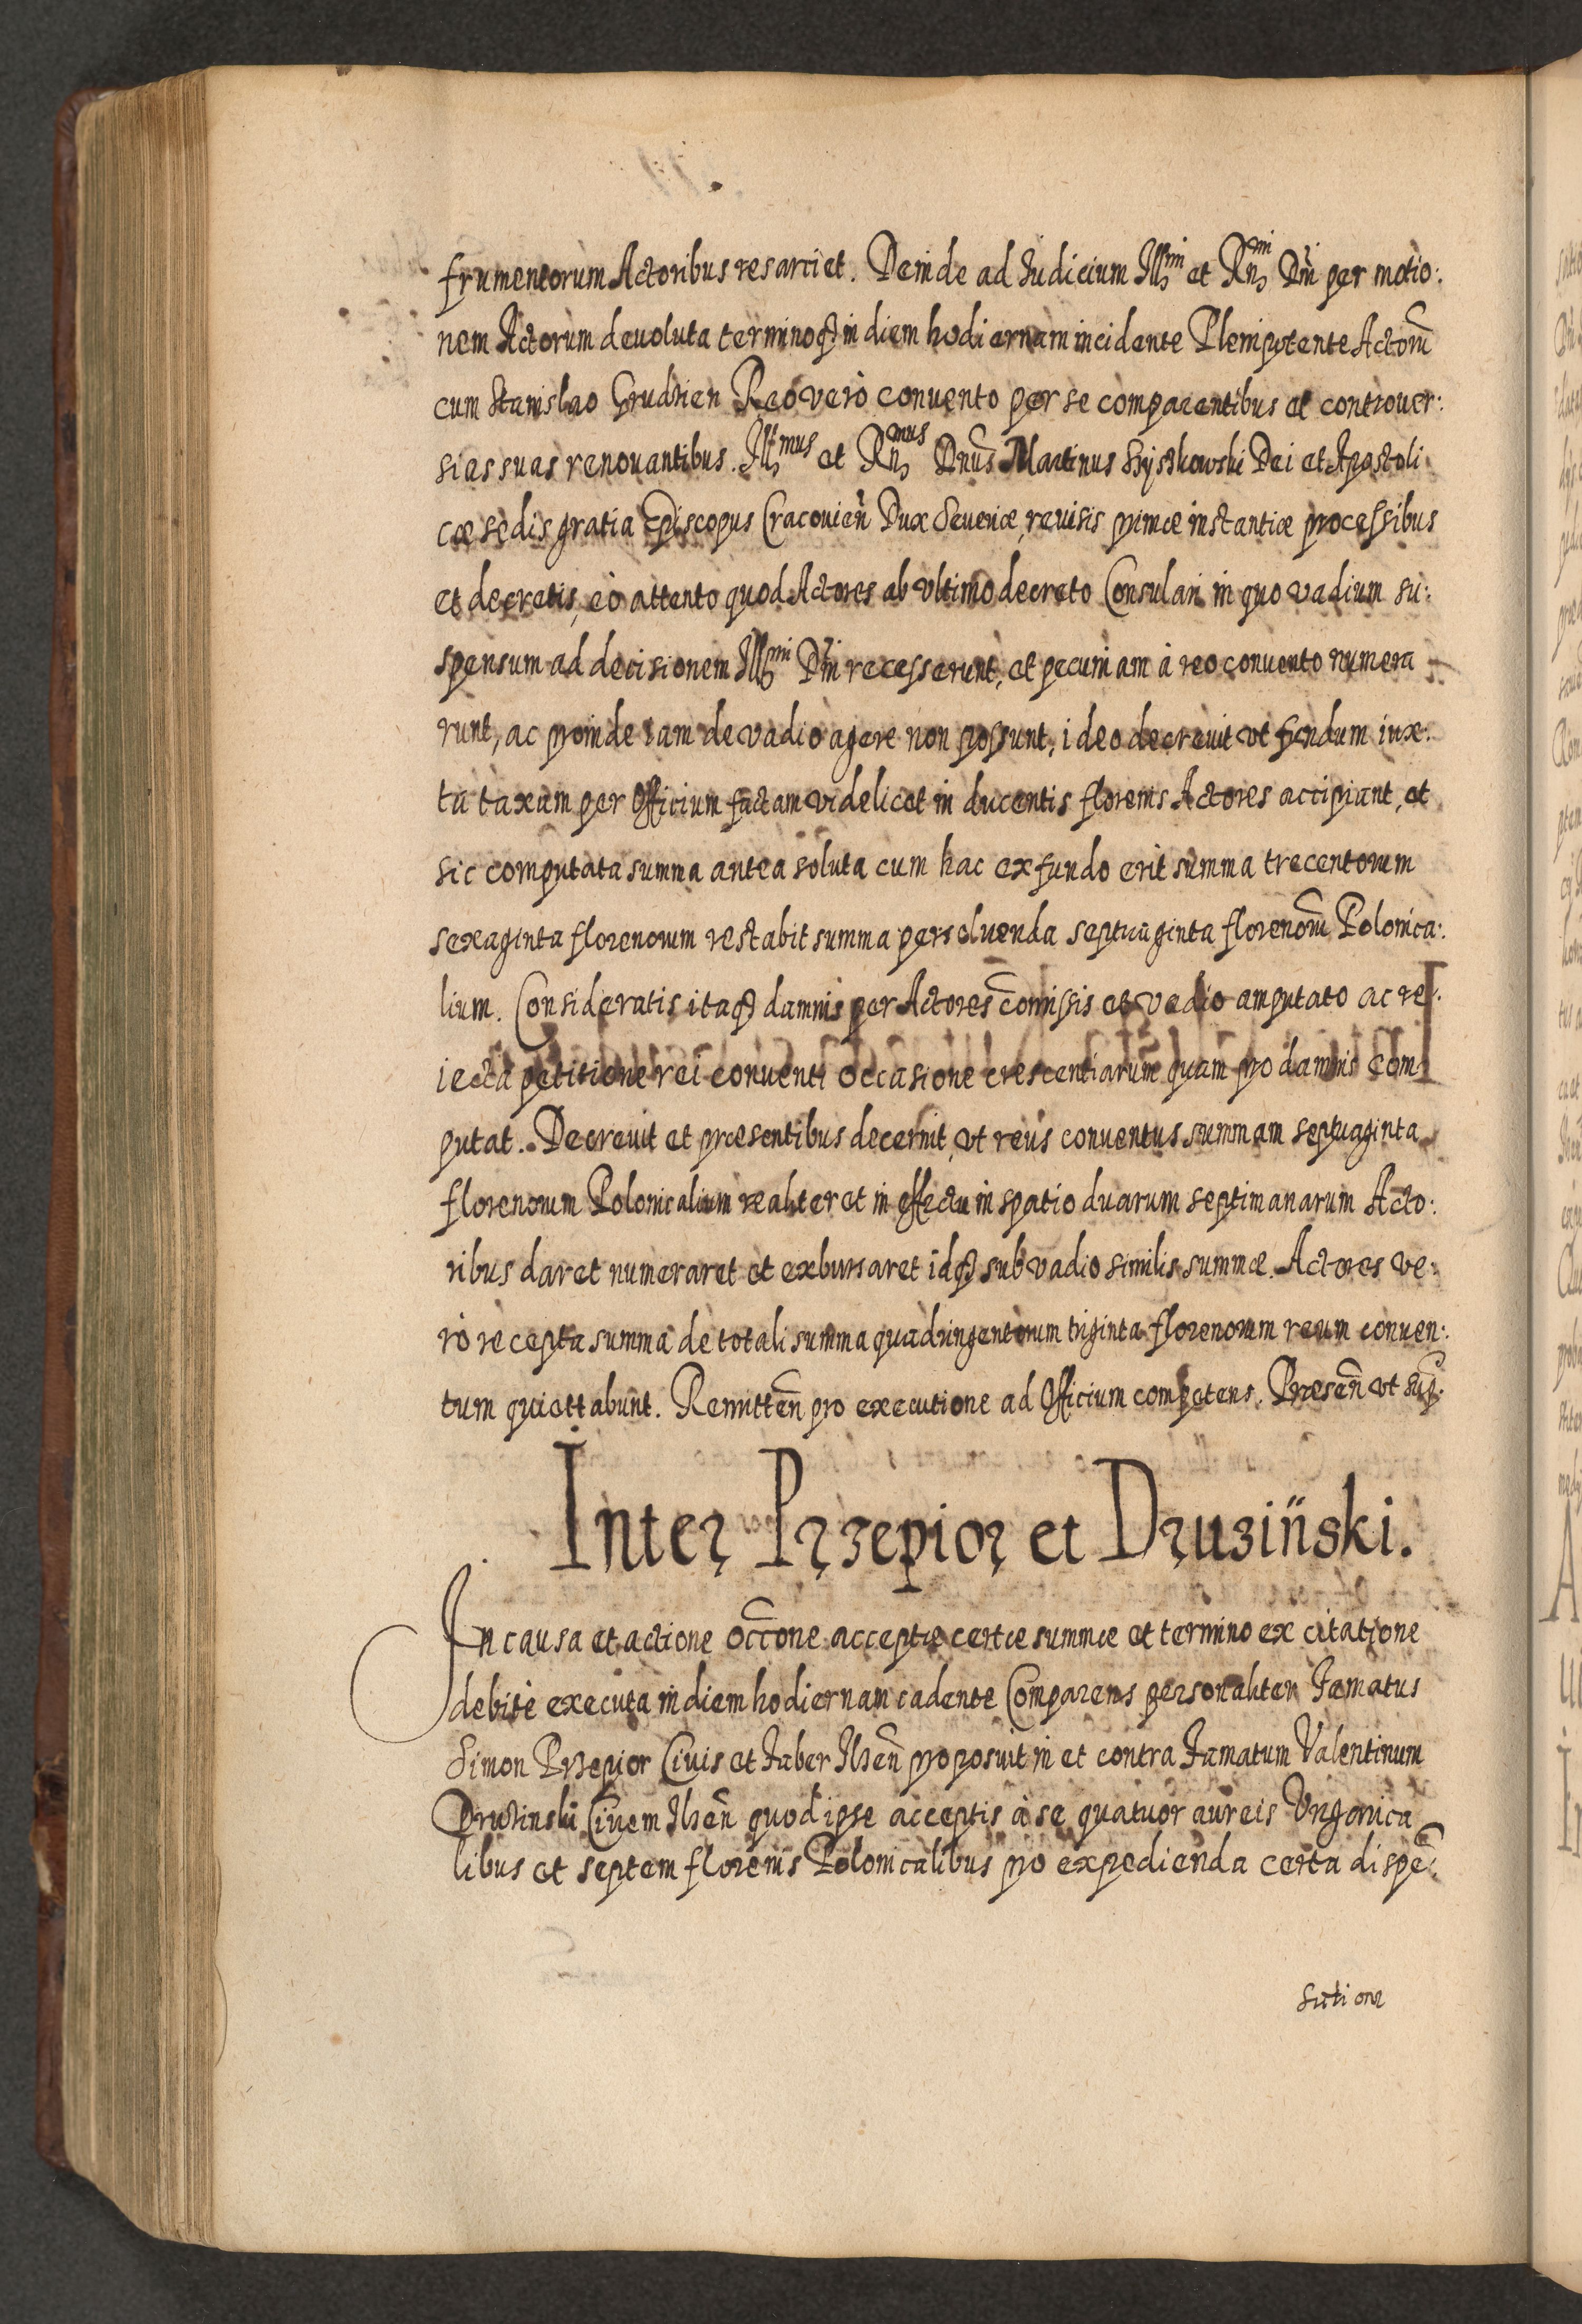 frumentorum Actoribus resarciet. Deinde ad Iudicium Illmi et Rndmi Dni per motio:
nem Actorum deuoluta terminoq3 in diem hodiernam incidente Plenipotente Actorũ
cum Stanislao Grudzien Reo vero conuento per se comparentibus et controuer:
sias suas renouantibus. Illmus et Rndmus Dnus Martinus Szyszkowski Dei et Apostoli
cæ sedis gratia Episcopus Cracouien̄ Dux Seueriæ, reuisis primæ instantiæ processibus
et decretis, eo attento quod Actores ab vltimo decreto Consulari in quo vadium su:
spensum ad decisionem Illmi Dni recesserunt, et pecuniam à reo conuento numera
runt, ac proinde iam de vadio agere non possunt, ideo decreuit vt fundum iux:
ta taxam per Officium factam videlicet in ducentis florenis Actores accipiant, et
sic computata summa antea soluta cum hac ex fundo erit summa trecentorum
sexaginta florenorum restabit summa persoluenda septuaginta florenorũ Polonica:
lium. Consideratis itaq3 damnis per Actores com̃issis et vadio amputato ac re:
iecta petitione rei conuenti occasione crescentiarum quam pro damnis com
putat. Decreuit et præsentibus decernit, vt reus conuentus summam septuaginta
florenorum Polonicalium realiter et in effectu in spatio duarum septimanarum Acto:
ribus daret numeraret et exbursaret idq3 sub vadio similis summæ. Actores ve:
ro recepta summa de totali summa quadringentorum triginta florenorum reum conuen:
tum quiettabunt. Remitten̄ pro executione ad Officium competens. Præsen̄ vt sup̃.
Inter Przepior et Druziński.
In causa et actione occ̃one acceptæ certæ summæ et termino ex citatione
debitè executa in diem hodiernam cadente Comparens personaliter Famatus
Simon Przepior Ciuis et Faber Ilzen̄ proposuit in et contra Famatum Valentinum
Druzinski Ciuem Ilzen̄ quod ipse acceptis à se quatuor aureis Vngarica
libus et septem florenis Polonicalibus pro expedienda certa dispẽ:
satione